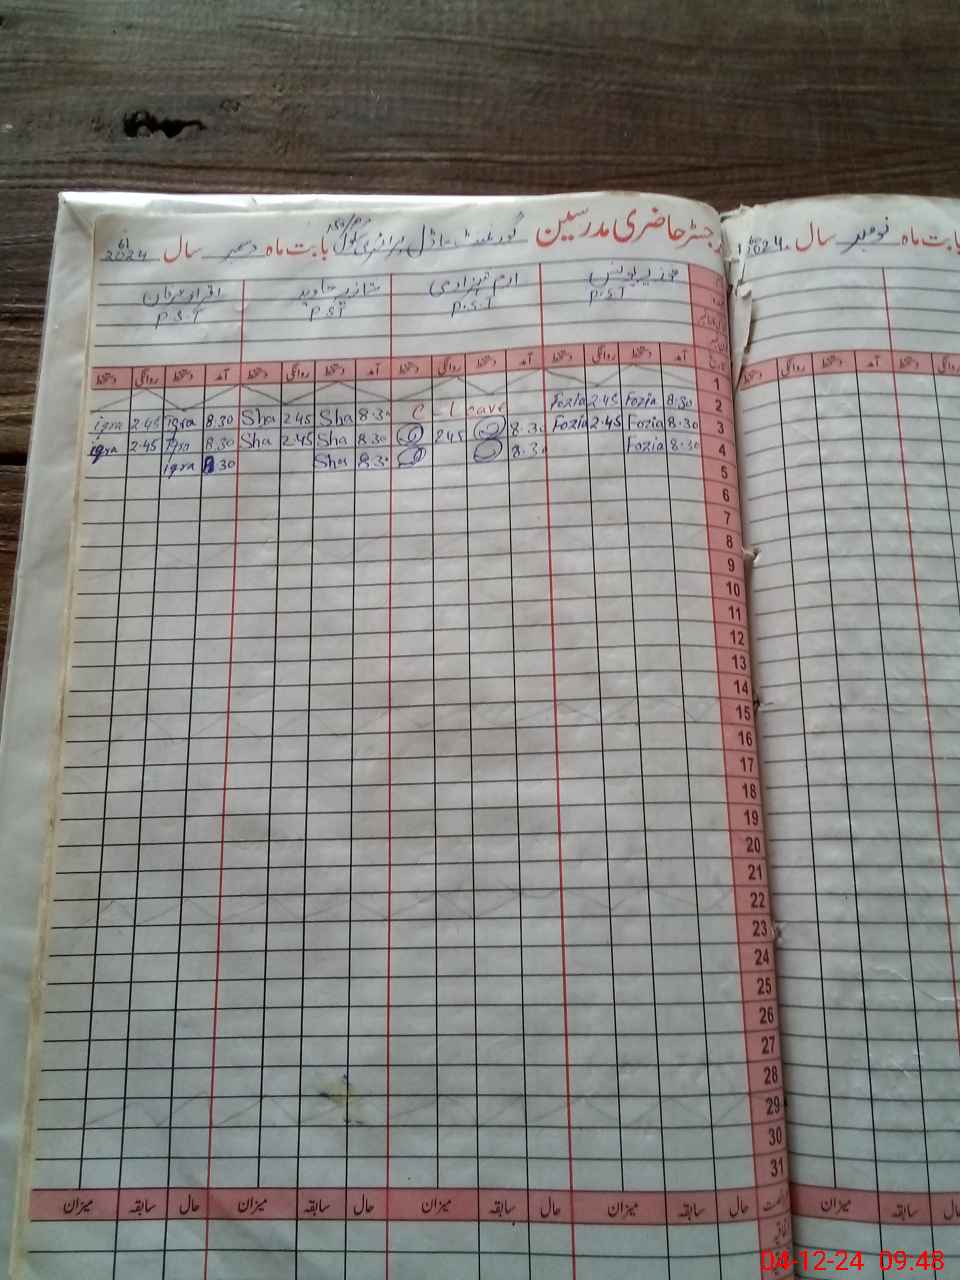 رجسٹر حاضری مدرسین گورنمنٹ ماڈل پرائمری سکول بابت ماہ دسمبر سال 2024
بابت ماہ نومبر سال 2024
فوزیہ یونس ارم شہزادی شازیہ جاوید اقراء عرفان
P.S.T P.S.T P.S.T P.S.T
آمد دستخط روانگی دستخط آمد دستخط روانگی دستخط آمد دستخط روانگی دستخط آمد دستخط روانگی دستخط
1
2 8:30 Fozia 2.45 Fozia C - Leave 8.30 Sha 2.45 Sha 8.30 iqra 2.45 iqra
3 8.30 Fozia 2.45 Fozia 8.30 2.45 8.30 Sha 2.45 Sha 8.30 iqra 2.45 iqra
4 8.30 Fozia 8.30 8.30 Sha 8.30 iqra
5
6
7
8
9
10
11
12
13
14
15
16
17
18
19
20
21
22
23
24
25
26
27
28
29
30
31
حال سابقہ میزان حال سابقہ میزان حال سابقہ میزان حال سابقہ میزان
04-12-24 09:48